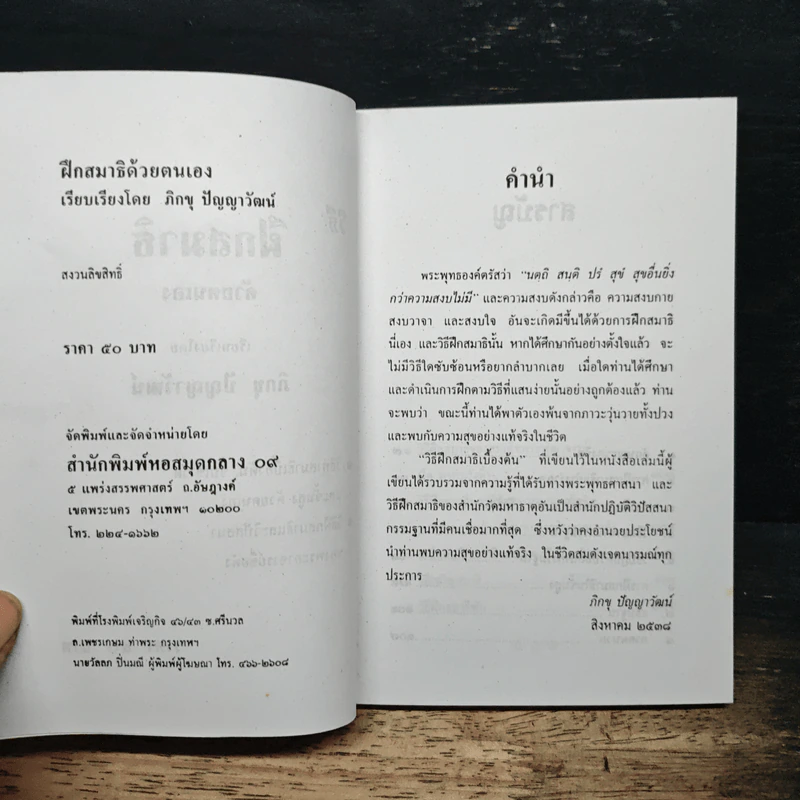 ฝึกสมาธิด้วยตนเอง
เรียบเรียงโดย ภิกขุ ปัญญาวัฒน์
สงวนลิขสิทธิ์
ราคา ๕๐ บาท
จัดพิมพ์และจัดจำหน่ายโดย
สำนักพิมพ์หอสมุดกลาง ๐๙
๕ แพร่งสรรพศาสตร์ ถ.อัษฎางค์
เขตพระนคร กรุงเทพฯ ๑๐๒๐๐
โทร. ๒๒๔-๑๖๖๒
พิมพ์ที่โรงพิมพ์เจริญกิจ ๔๖/๔๓ ซ.ศรีนวล
ถ.เพชรเกษม ท่าพระ กรุงเทพฯ
นายวัลลภ ปิ่นมณี ผู้พิมพ์ผู้โฆษณา โทร. ๔๖๖-๒๖๐๘
คำนำ
พระพุทธองค์ตรัสว่า "นตฺถิ สนฺติ ปรํ สุขํ สุขอื่นยิ่ง
กว่าความสงบไม่มี" และความสงบดังกล่าวคือ ความสงบกาย
สงบวาจา และสงบใจ อันจะเกิดมีขึ้นได้ด้วยการฝึกสมาธิ
นี่เอง และวิธีฝึกสมาธินั้น หากได้ศึกษากันอย่างตั้งใจแล้ว จะ
ไม่มีวิธีใดซับซ้อนหรือยากลำบากเลย เมื่อใดท่านได้ศึกษา
และดำเนินการฝึกตามวิธีที่แสนง่ายนั้นอย่างถูกต้องแล้ว ท่าน
จะพบว่า ขณะนี้ท่านได้พาตัวเองพ้นจากภาวะวุ่นวายทั้งปวง
และพบกับความสุขอย่างแท้จริงในชีวิต
"วิธีฝึกสมาธิเบื้องต้น" ที่เขียนไว้ในหนังสือเล่มนี้ผู้
เขียนได้รวบรวมจากความรู้ที่ได้รับทางพระพุทธศาสนา และ
วิธีฝึกสมาธิของสำนักวัดมหาธาตุอันเป็นสำนักปฏิบัติวิปัสสนา
กรรมฐานที่มีคนเชื่อมากที่สุด ซึ่งหวังว่าคงอำนวยประโยชน์
นำท่านพบความสุขอย่างแท้จริง ในชีวิตสมดังเจตนารมณ์ทุก
ประการ
ภิกขุ ปัญญาวัฒน์
สิงหาคม ๒๕๓๘